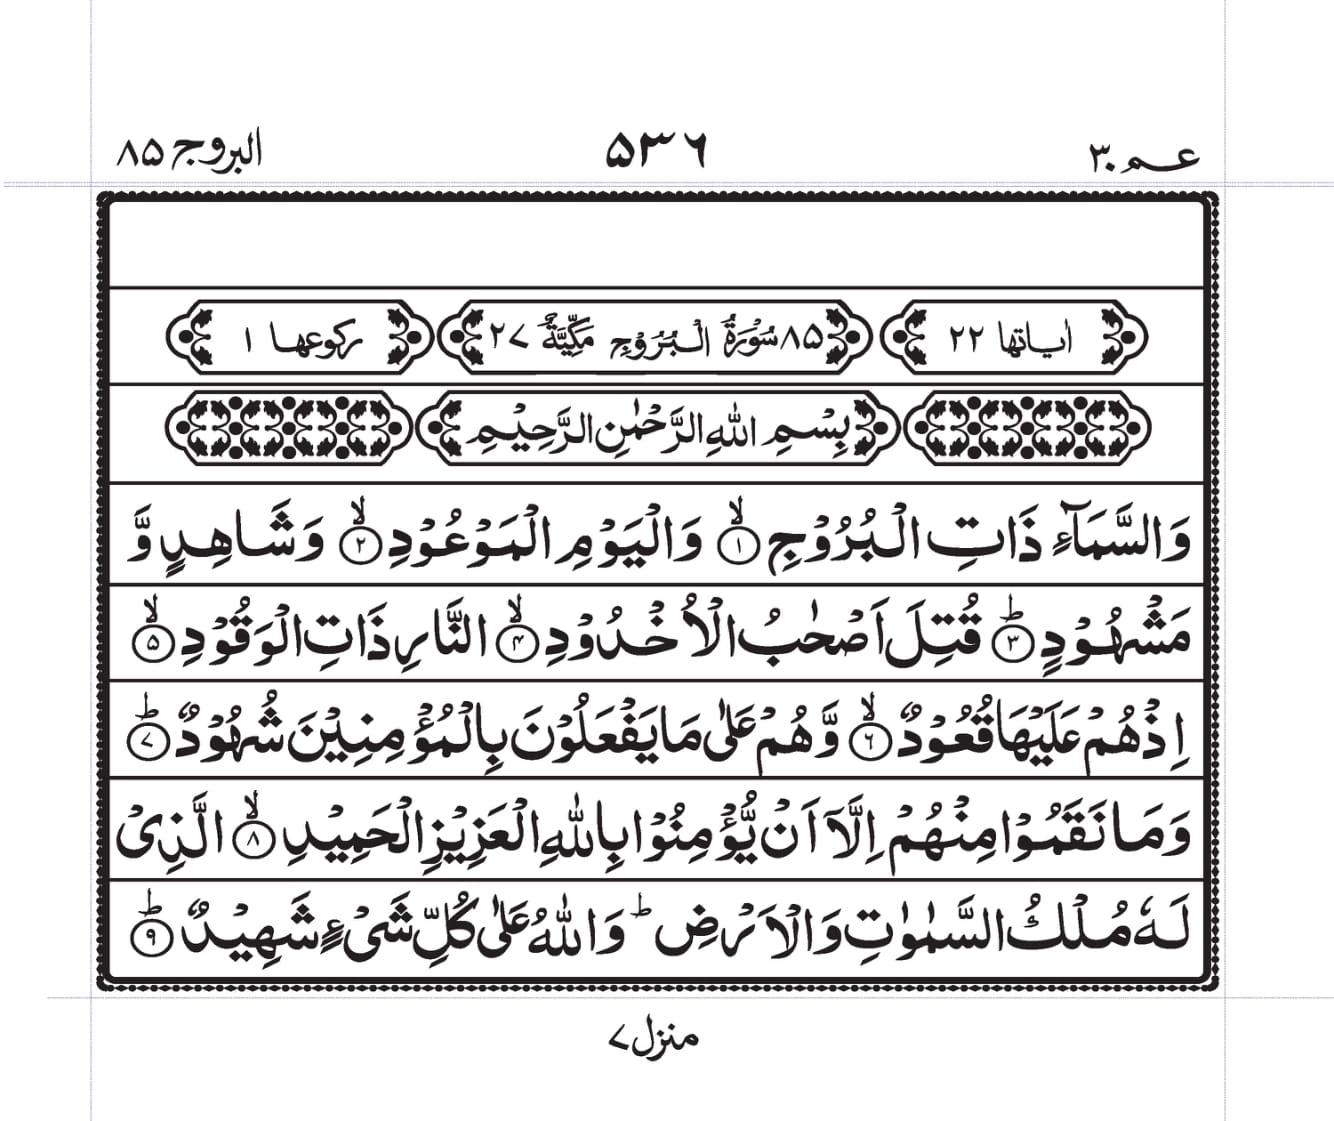 عـــم ۳۰
۵۳۶
البروج ۸۵
اٰیاتها ۲۲
۸۵ سُوْرَةُ الْبُرُوْجِ مَكِّیَّةٌ ۲۷
رکوعها ۱
بِسْمِ اللّٰهِ الرَّحْمٰنِ الرَّحِیْمِ
وَالسَّمَآءِ ذَاتِ الْبُرُوْجِ ۙ﴿۱﴾ وَالْیَوْمِ الْمَوْعُوْدِ ۙ﴿۲﴾ وَشَاهِدٍ وَّ
مَشْهُوْدٍ ؕ﴿۳﴾ قُتِلَ اَصْحٰبُ الْاُخْدُوْدِ ۙ﴿۴﴾ النَّارِ ذَاتِ الْوَقُوْدِ ۙ﴿۵﴾
اِذْ هُمْ عَلَیْهَا قُعُوْدٌ ۙ﴿۶﴾ وَّهُمْ عَلٰى مَا یَفْعَلُوْنَ بِالْمُؤْمِنِیْنَ شُهُوْدٌ ؕ﴿۷﴾
وَمَا نَقَمُوْا مِنْهُمْ اِلَّاۤ اَنْ یُّؤْمِنُوْا بِاللّٰهِ الْعَزِیْزِ الْحَمِیْدِ ۙ﴿۸﴾ الَّذِیْ
لَهٗ مُلْكُ السَّمٰوٰتِ وَالْاَرْضِ ؕ وَاللّٰهُ عَلٰى كُلِّ شَیْءٍ شَهِیْدٌ ؕ﴿۹﴾
منزل ۷